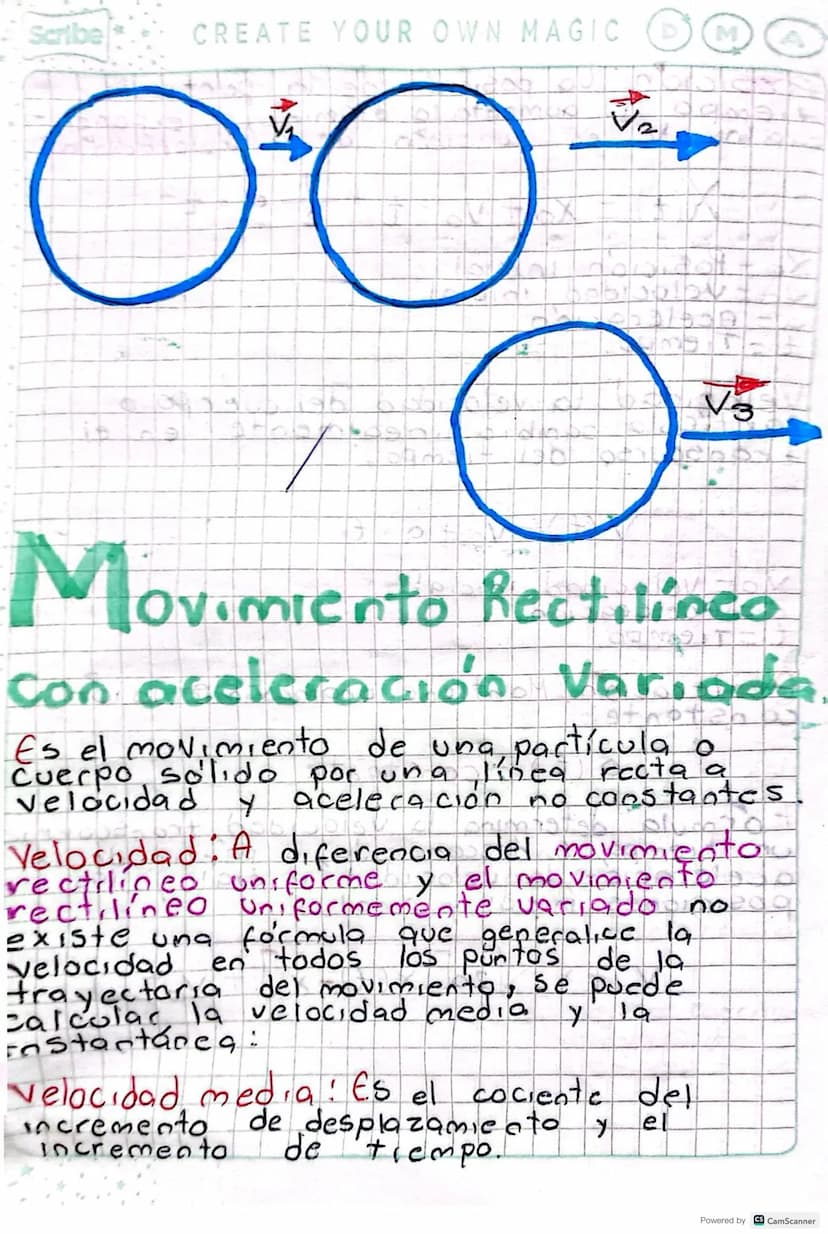 Scribe CREATE YOUR OWN MAGIC D M A
V1 V2
V3
Movimiento Rectilíneo
con aceleración Variada.
Es el movimiento de una partícula o
cuerpo sólido por una línea recta a
velocidad y aceleración no constantes.
Velocidad: A diferencia del movimiento
rectilíneo uniforme y el movimiento
rectilíneo uniformemente variado no
existe una fórmula que generalice la
velocidad en todos los puntos de la
trayectoria del movimiento, se puede
calcular la velocidad media y la
instantánea:
Velocidad media: Es el cociente del
incremento de desplazamiento y el
incremento de tiempo.
Powered by CS CamScanner